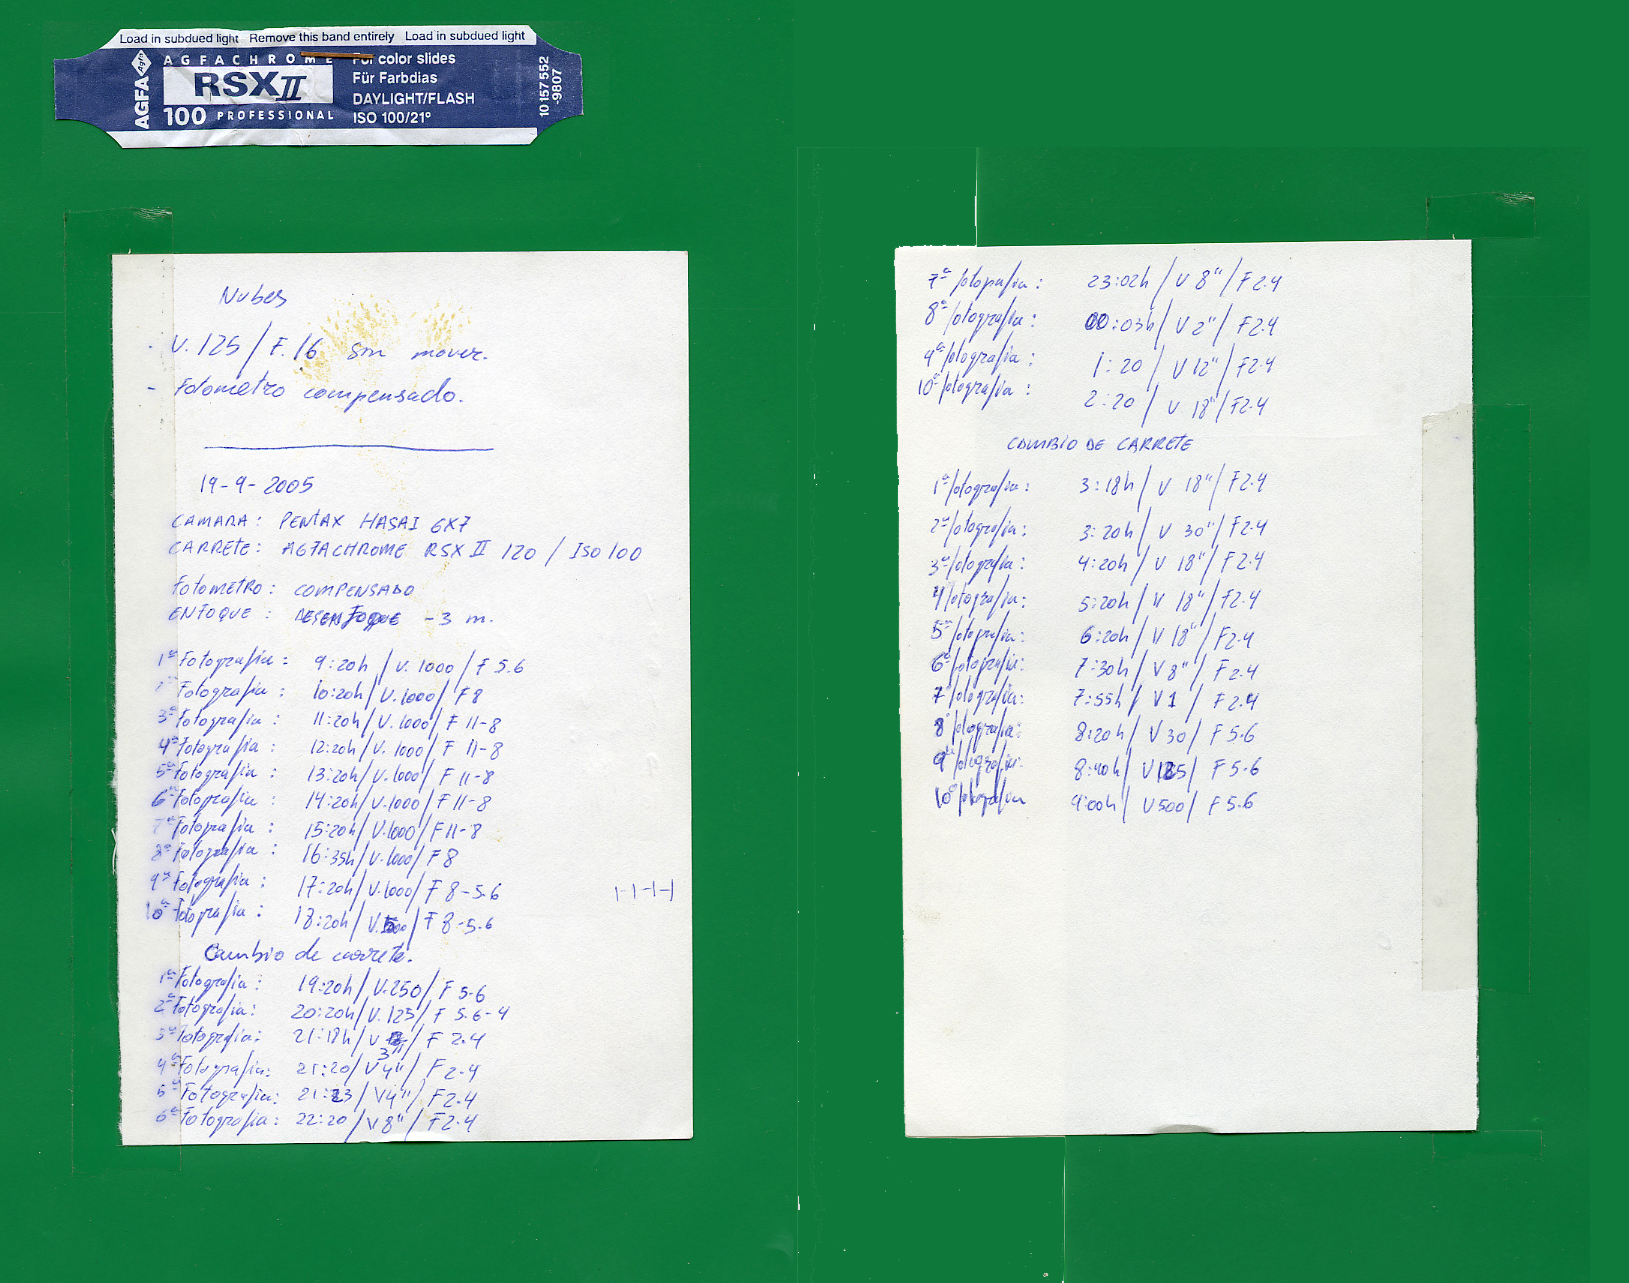 Load in subdued light Remove this band entirely Load in subdued light
AGFA Agfa
AGFACHROME
RSX II
100 PROFESSIONAL
For color slides
Für Farbdias
DAYLIGHT/FLASH
ISO 100/21°
10157552
-9807
Nubes
- V.125/F.16 sin mover.
- Fotometro compensado.
19-9-2005
CAMARA: PENTAX HASAI 6X7
CARRETE: AGFACHROME RSX II 120 / ISO 100
FOTOMETRO: COMPENSADO
ENFOQUE: DESENFOQUE -3 m.
1ª Fotografia: 9:20h/V.1000/F 5.6
2ª Fotografia: 10:20h/V.1000/F8
3ª Fotografia: 11:20h/V.1000/F 11-8
4ª Fotografia: 12:20h/V.1000/F 11-8
5ª Fotografia: 13:20h/V.1000/F 11-8
6ª Fotografia: 14:20h/V.1000/F 11-8
7ª Fotografia: 15:20h/V.1000/F 11-8
8ª Fotografia: 16:35h/V.1000/F8
9ª Fotografia: 17:20h/V.1000/F 8-5.6
10ª Fotografia: 18:20h/V.500/F 8-5.6
Cambio de carrete.
1ª Fotografia: 19:20h/V.250/F 5.6
2ª Fotografia: 20:20h/V.125/F 5.6-4
3ª Fotografia: 21:18h/V 3"/F 2.4
4ª Fotografia: 21:20/V4"/F2.4
5ª Fotografia: 21:23/V4"/F2.4
6ª Fotografia: 22:20/V8"/F2.4
7ª fotografia: 23:02h/V 8"/F2.4
8ª fotografia: 00:03h/V2"/F2.4
9ª fotografia: 1:20/V12"/F2.4
10ª fotografia: 2:20/V 18"/F2.4
CAMBIO DE CARRETE
1ª fotografia: 3:18h/V 18"/F2.4
2ª fotografia: 3:20h/V 30"/F2.4
3ª fotografia: 4:20h/V 18"/F2.4
4ª fotografia: 5:20h/V 18"/F2.4
5ª fotografia: 6:20h/V 18"/F2.4
6ª fotografia: 7:30h/V8"/F2.4
7ª fotografia: 7:55h/V1/F2.4
8ª fotografia: 8:20h/V30/F 5.6
9ª fotografia: 8:40h/V125/F 5.6
10ª fotografia 9:00h/V500/F 5.6